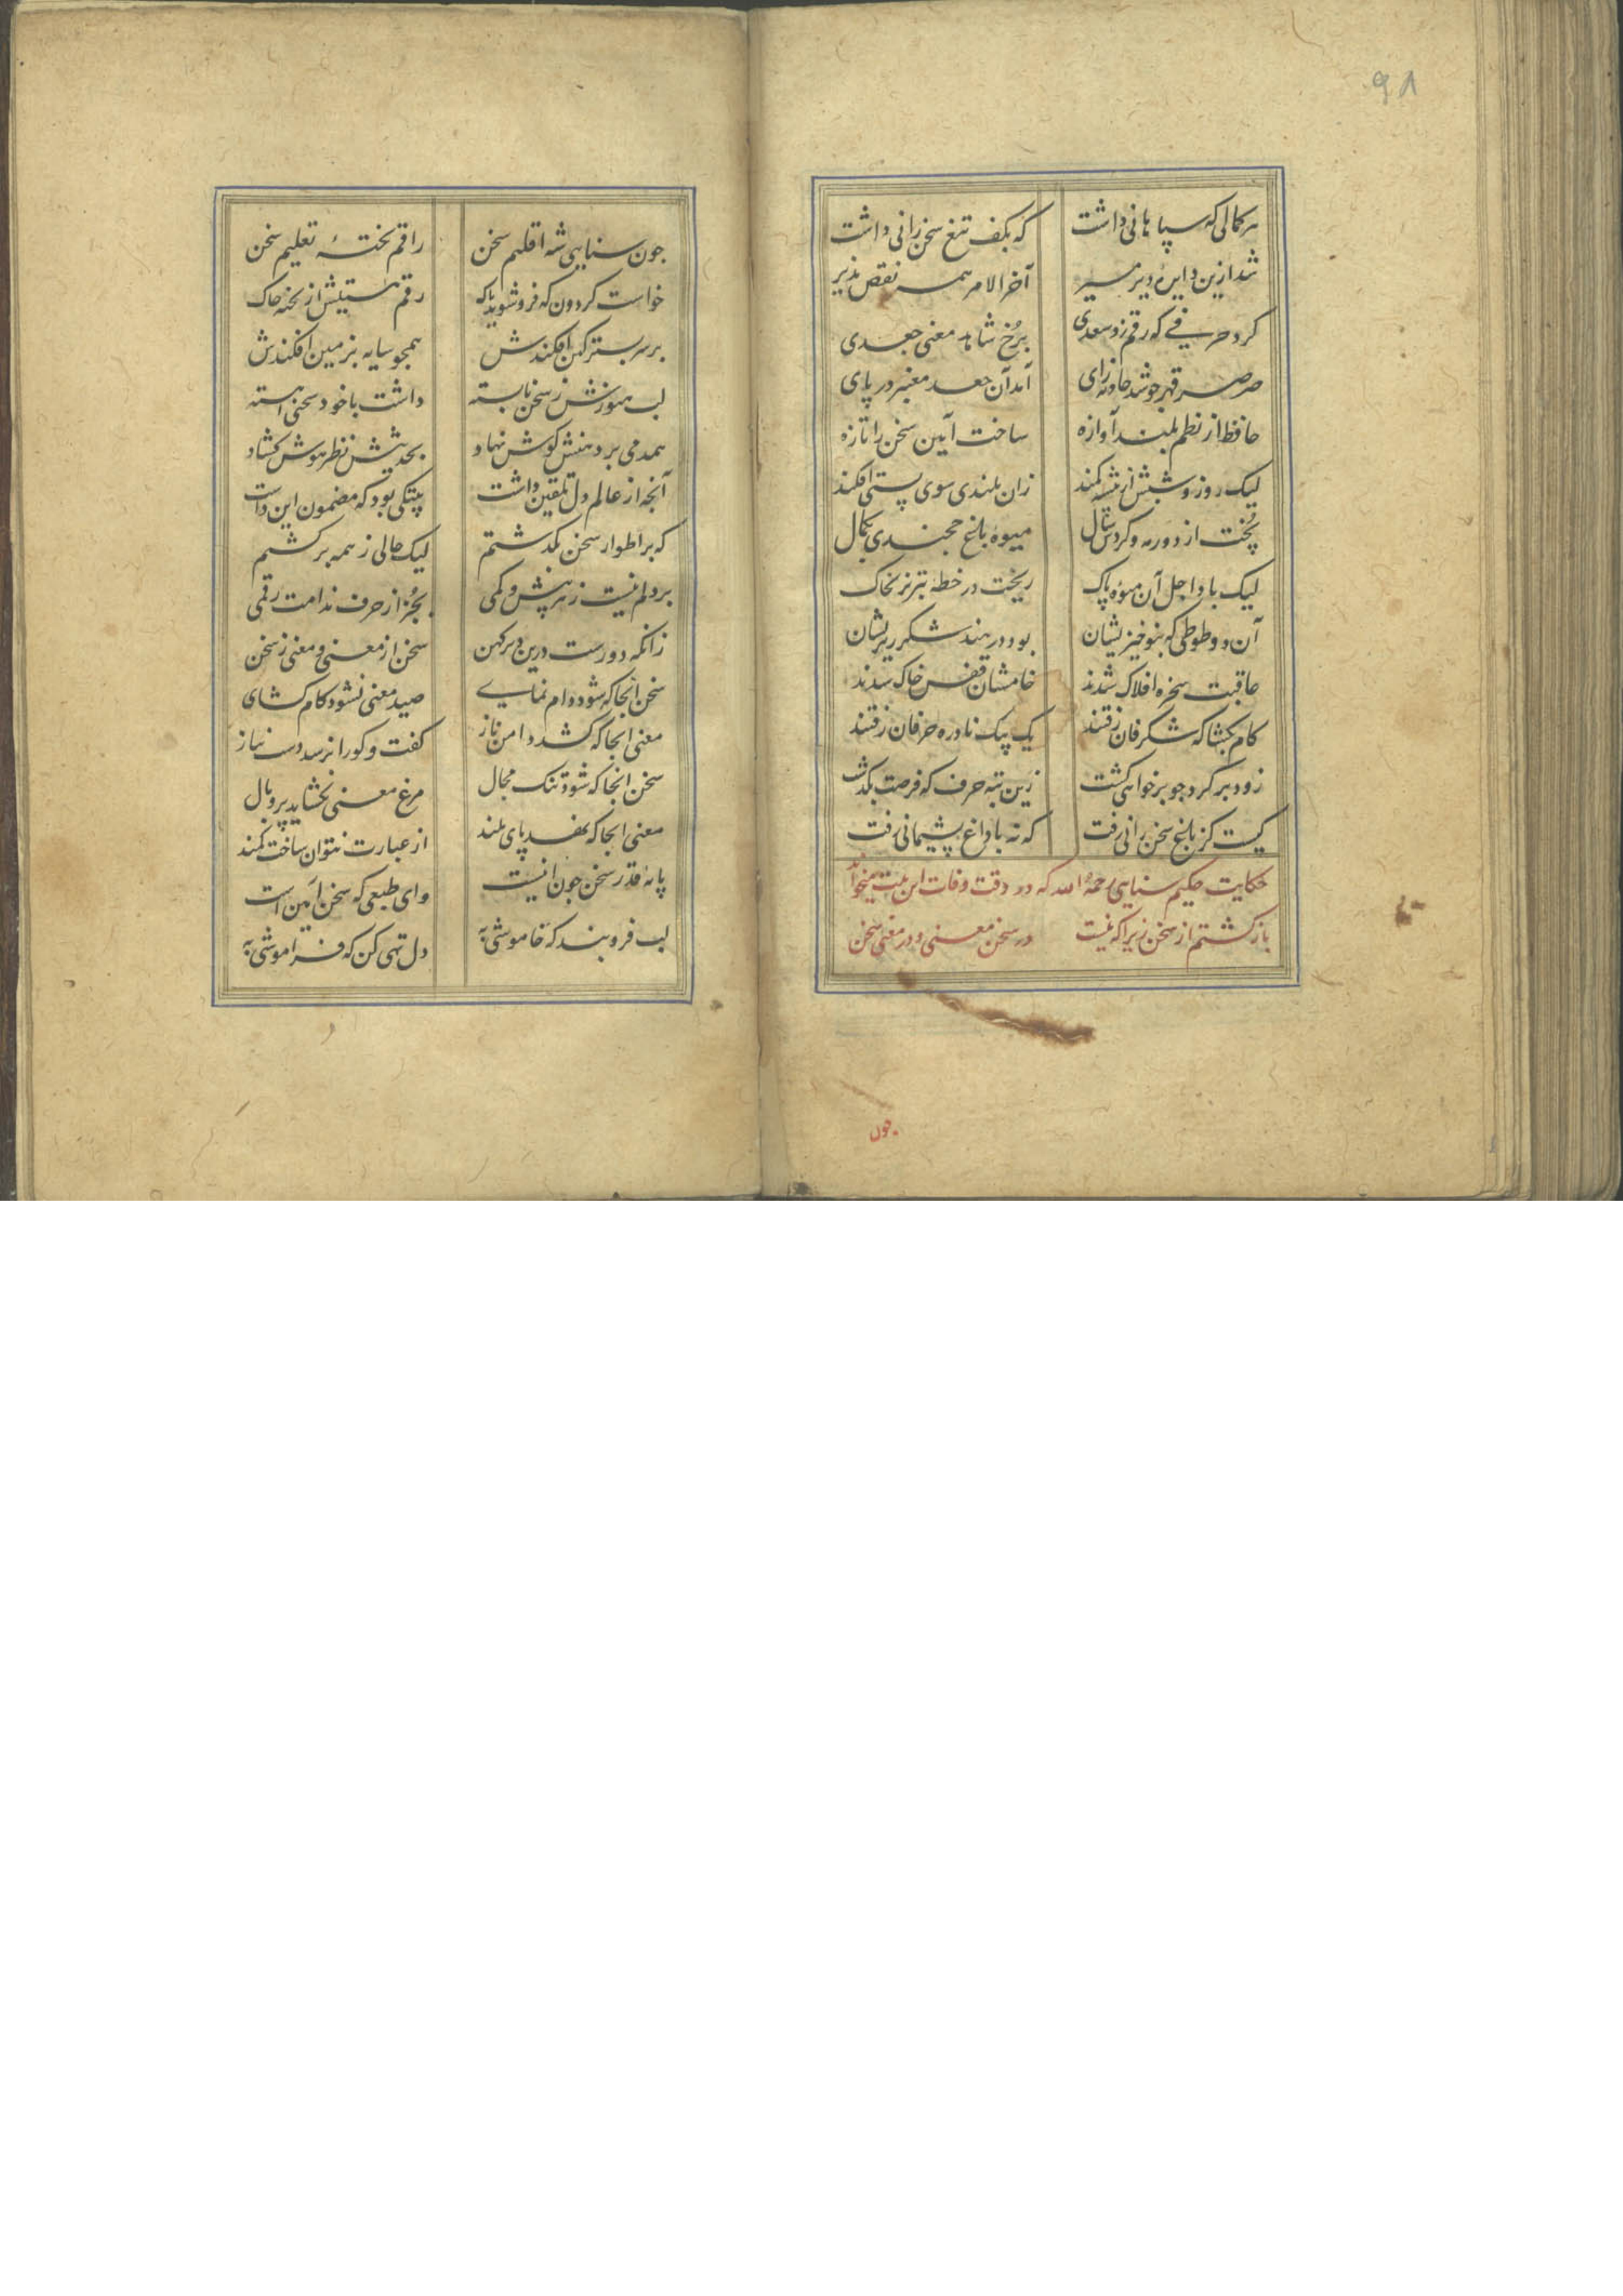 ۹۸
هر کمالی که سپاهانی داشت که بکف تیغ سخن رانی داشت
شد ازین دایره دیر مسیر آخر الامر همه نقص پذیر
کرد حرفی که رقم زد سعدی بر رخ شاهد معنی جعدی
صرصر قهر جو شد حادثه زای آمد آن جعد معنبر در پای
حافظ از نظم بلند آوازه ساخت آیین سخن را تازه
لیک روز و شبش از شیشه کمند زان بلندی سوی پستی افکند
پخت از دور مه و کردش سال میوه باغ خجندی بکمال
لیک باد اجل آن میوه پاک ریخت در خطه تبریز بخاک
آن دو طوطی که بنوخیزیشان بود در هند شکرریزیشان
عاقبت سخره افلاک شدند خامشان قفس خاک شدند
کام بکشا که شکرفان رفتند یک بیک نادره حرفان رفتند
زود برکرد جو برخواهی کشت زین تبه حرف که فرصت بکذشت
کیست کز باغ سخن رانی رفت که نه با داغ پشیمانی رفت
حکایت حکیم سنایی رحمه الله که در وقت وفات این بیت میخواند
باز کشتم از سخن زیرا که نیست در سخن معنی و در معنی سخن
جون
جون سنایی شه اقلیم سخن راقم تختهٔ تعلیم سخن
خواست کردون که فروشوید پاک رقم هستیش از تخته خاک
بر سر بستر کین افکندش همجو سایه بزمین افکندش
لب هنوزش ز سخن نابسته داشت با خود سخنی آهسته
همدمی بر دهنش کوش نهاد بحدیثش نظر هوش کشاد
آنجه از عالم دل تلقین داشت بیتکی بود که مضمون این داشت
که بر اطوار سخن بکذشتم لیک حالی ز همه برکشتم
بر دلم نیست ز هر پیش و کمی بجز از حرف ندامت رقمی
زانکه دورست درین دیر کهن سخن از معنی و معنی ز سخن
سخن آنجا که شود دام نمای صید معنی نشود کام کشای
معنی آنجا که کشد دامن ناز کفت و کو را نرسد دست نیاز
سخن آنجا که شود تنک مجال مرغ معنی نکشاید پر و بال
معنی آنجا که نهد پای بلند از عبارت نتوان ساخت کمند
پایهٔ قدر سخن جون اینست وای طبعی که سخن آیین است
لب فروبند که خاموشی به دل تهی کن که فراموشی به